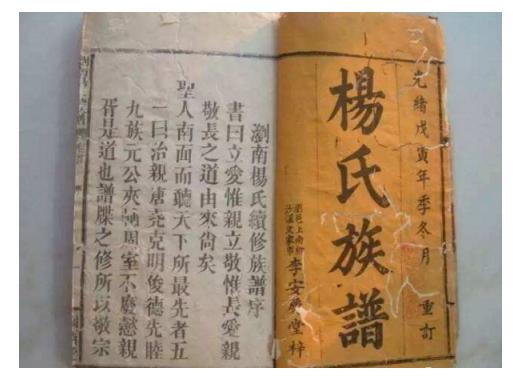 光緒戊寅年季冬月　重訂
楊氏族譜
李安慶堂梓
瀏南楊氏續修族譜序
書曰立愛惟親立敬惟長愛親
敬長之道由來尚矣
聖
人南面而聽天下所最先者五
一曰治親唐堯克明俊德先睦
九族元公夾輔周室不廢懿親
胥是道也譜牒之修所以敬宗